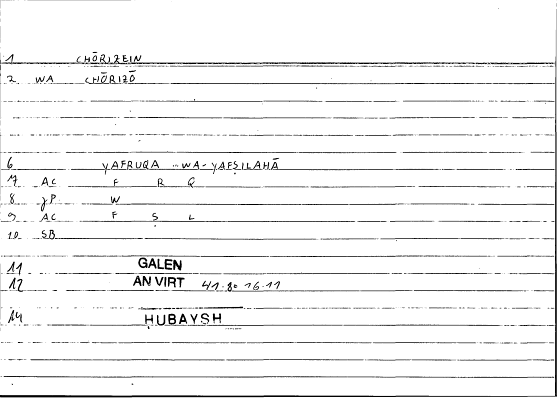 1 CHŌRIZEIN
2 WA CHŌRIZŌ
6 YAFRUQA WA-YAFṢILAHĀ
7 AC F R Q
8 W
9 AC F Ṣ L
10 SB
11 GALEN
12 AN VIRT 41.8 16.11
14 ḤUBAYSH